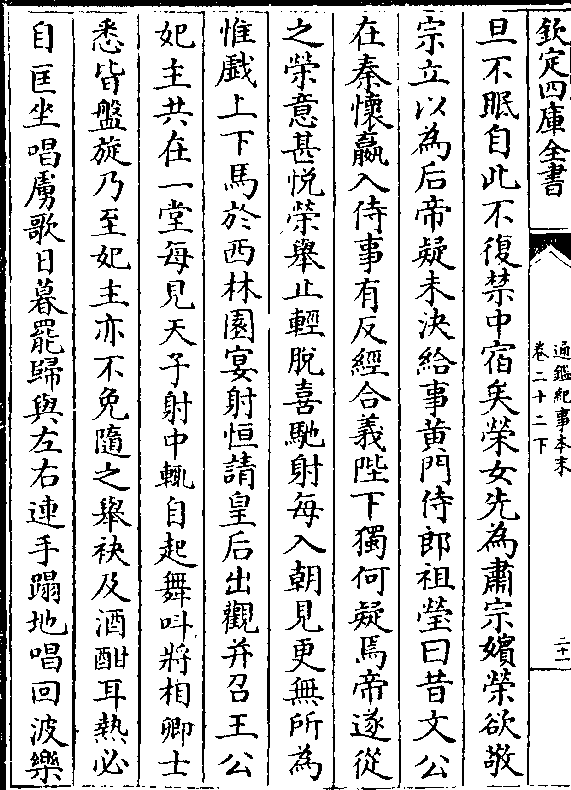 欽定四庫全書
通鑑紀事本末
卷二十二下
二十一
旦不眠自此不復禁中宿矣榮女先為肅宗嬪榮欲敬
宗立以為后帝疑未決給事黄門侍郎祖瑩曰昔文公
在秦懷嬴入侍事有反經合義陛下獨何疑焉帝遂從
之榮意甚悦榮舉止輕脫喜馳射每入朝見更無所為
惟戲上下馬於西林園宴射恒請皇后出觀并召王公
妃主共在一堂每見天子射中輒自起舞呌將相卿士
悉皆盤旋乃至妃主亦不免隨之舉袂及酒酣耳熱必
自匡坐唱虜歌日暮罷歸與左右連手蹋地唱回波樂